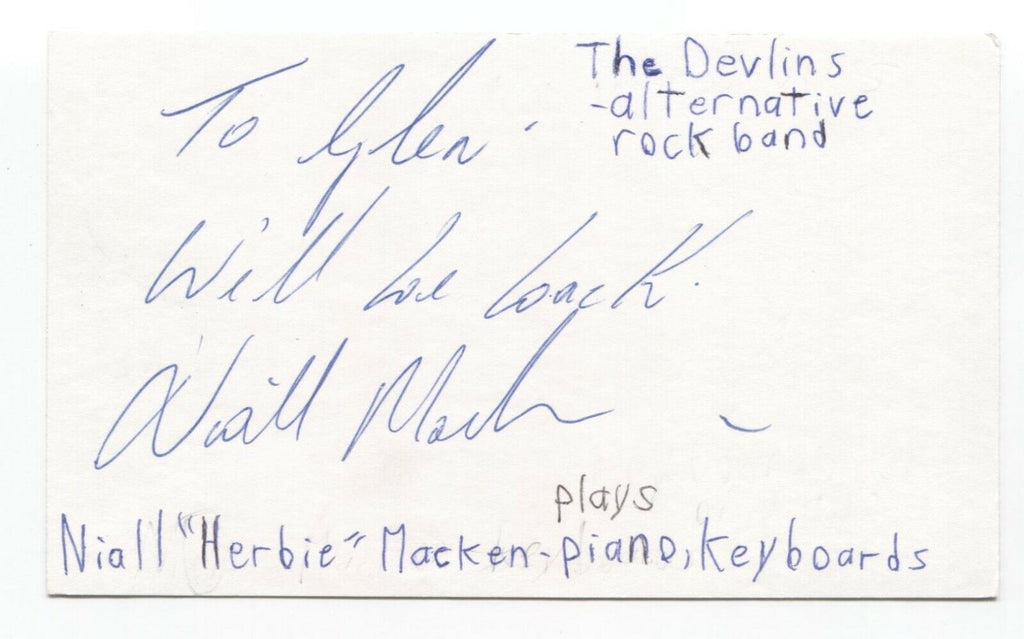 The Devlins
-alternative
rock band
To Glen.
Will be back.
Niall Macken
plays
Niall "Herbie" Macken-piano, keyboards